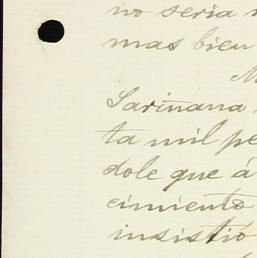 no seria
mas bien
Sariñana
ta mil pe
dole que á
cimiento
insistió